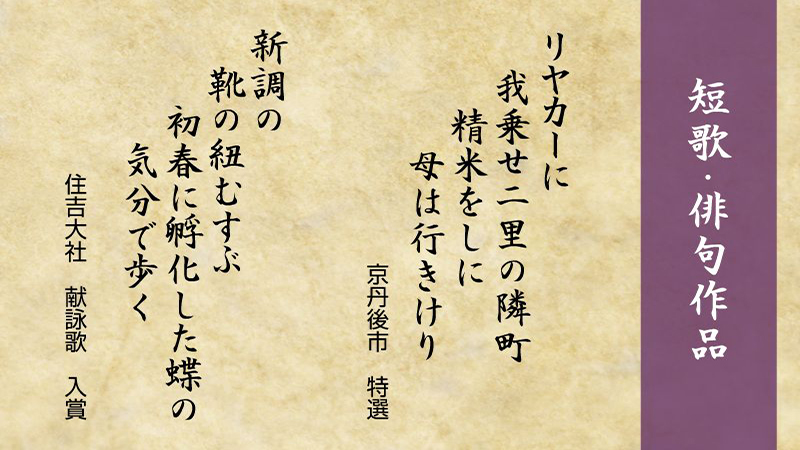 短歌・俳句作品
リヤカーに
我乗せ二里の隣町
精米をしに
母は行きけり
京丹後市　特選
新調の
靴の紐むすぶ
初春に孵化した蝶の
気分で歩く
住吉大社　献詠歌　入賞